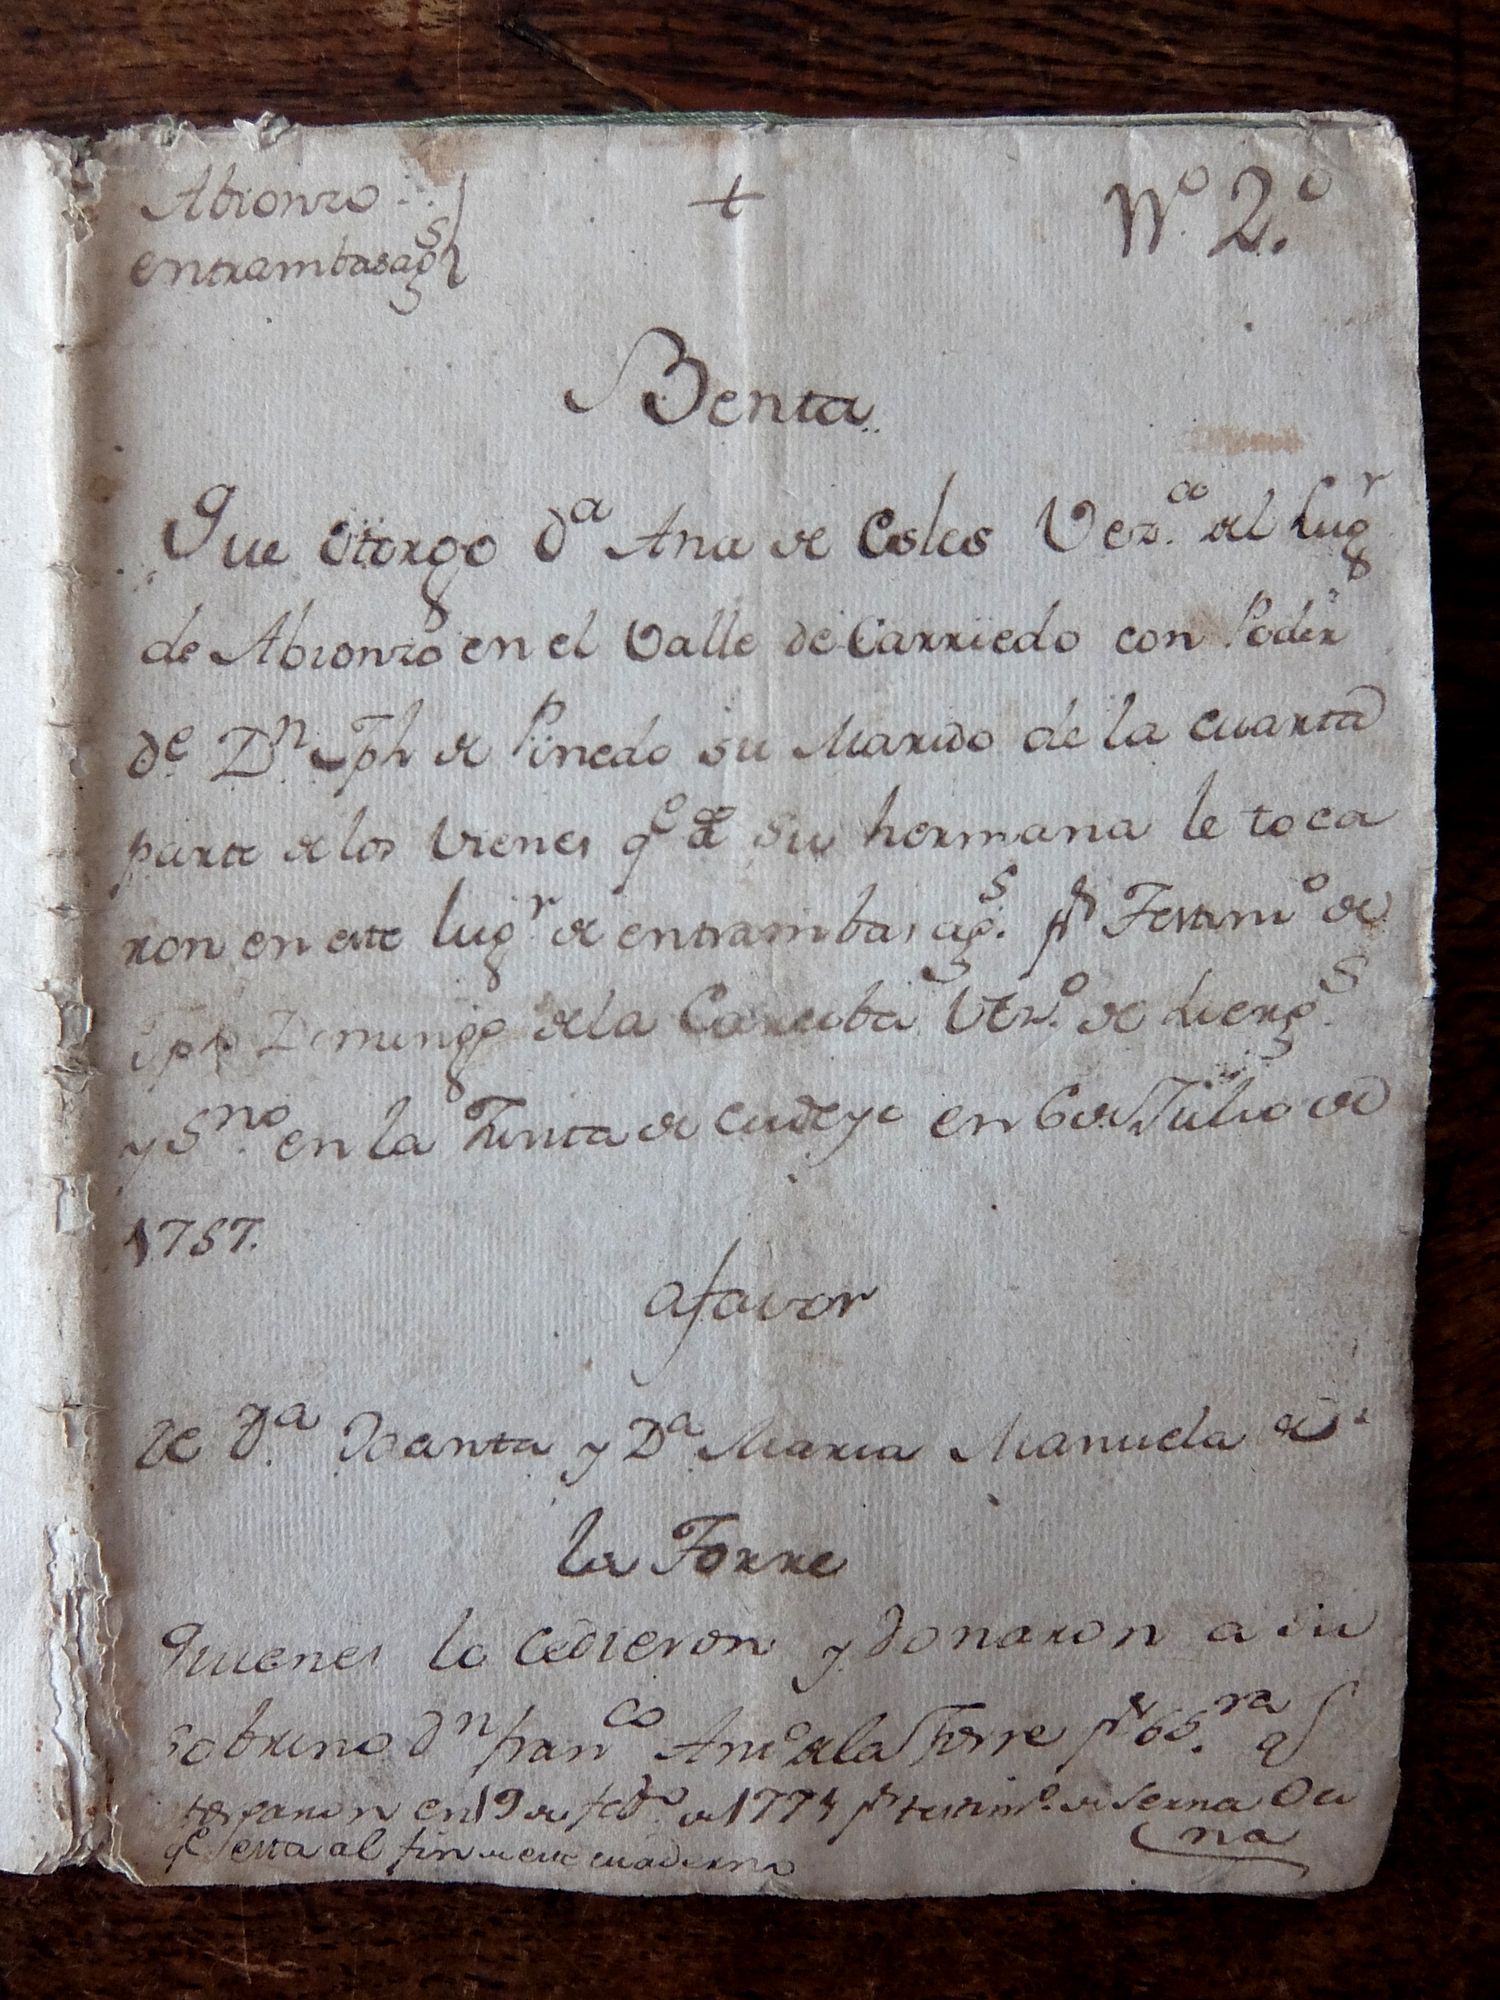 Abionzo
+
Nº 2º
entrambasags
Benta
Que otorgo Dª Ana de Esles Vezª del Lugr
de Abionzo en el Valle de Carriedo con Poder
de Dn Jph de Pinedo su Marido de la cuarta
parte de los vienes qe de su hermana le toca
ron en este lugr de entrambas ags pr Testimº de
Jph Domingo de la Vezº de Liergs
y Sno en la Junta de Cudeyo en 6 de Julio de
1757.
afavor
de Dª Jacinta y Dª Maria Manuela de
la Torre
Quienes lo cedieron y donaron a su
sobrino Dn franco Antº de la Torre pr es.ra q
otorgaron en 19 de febrº de 1774 pr testimº de Serna Oci
na
qe esta al fin de este cuaderno